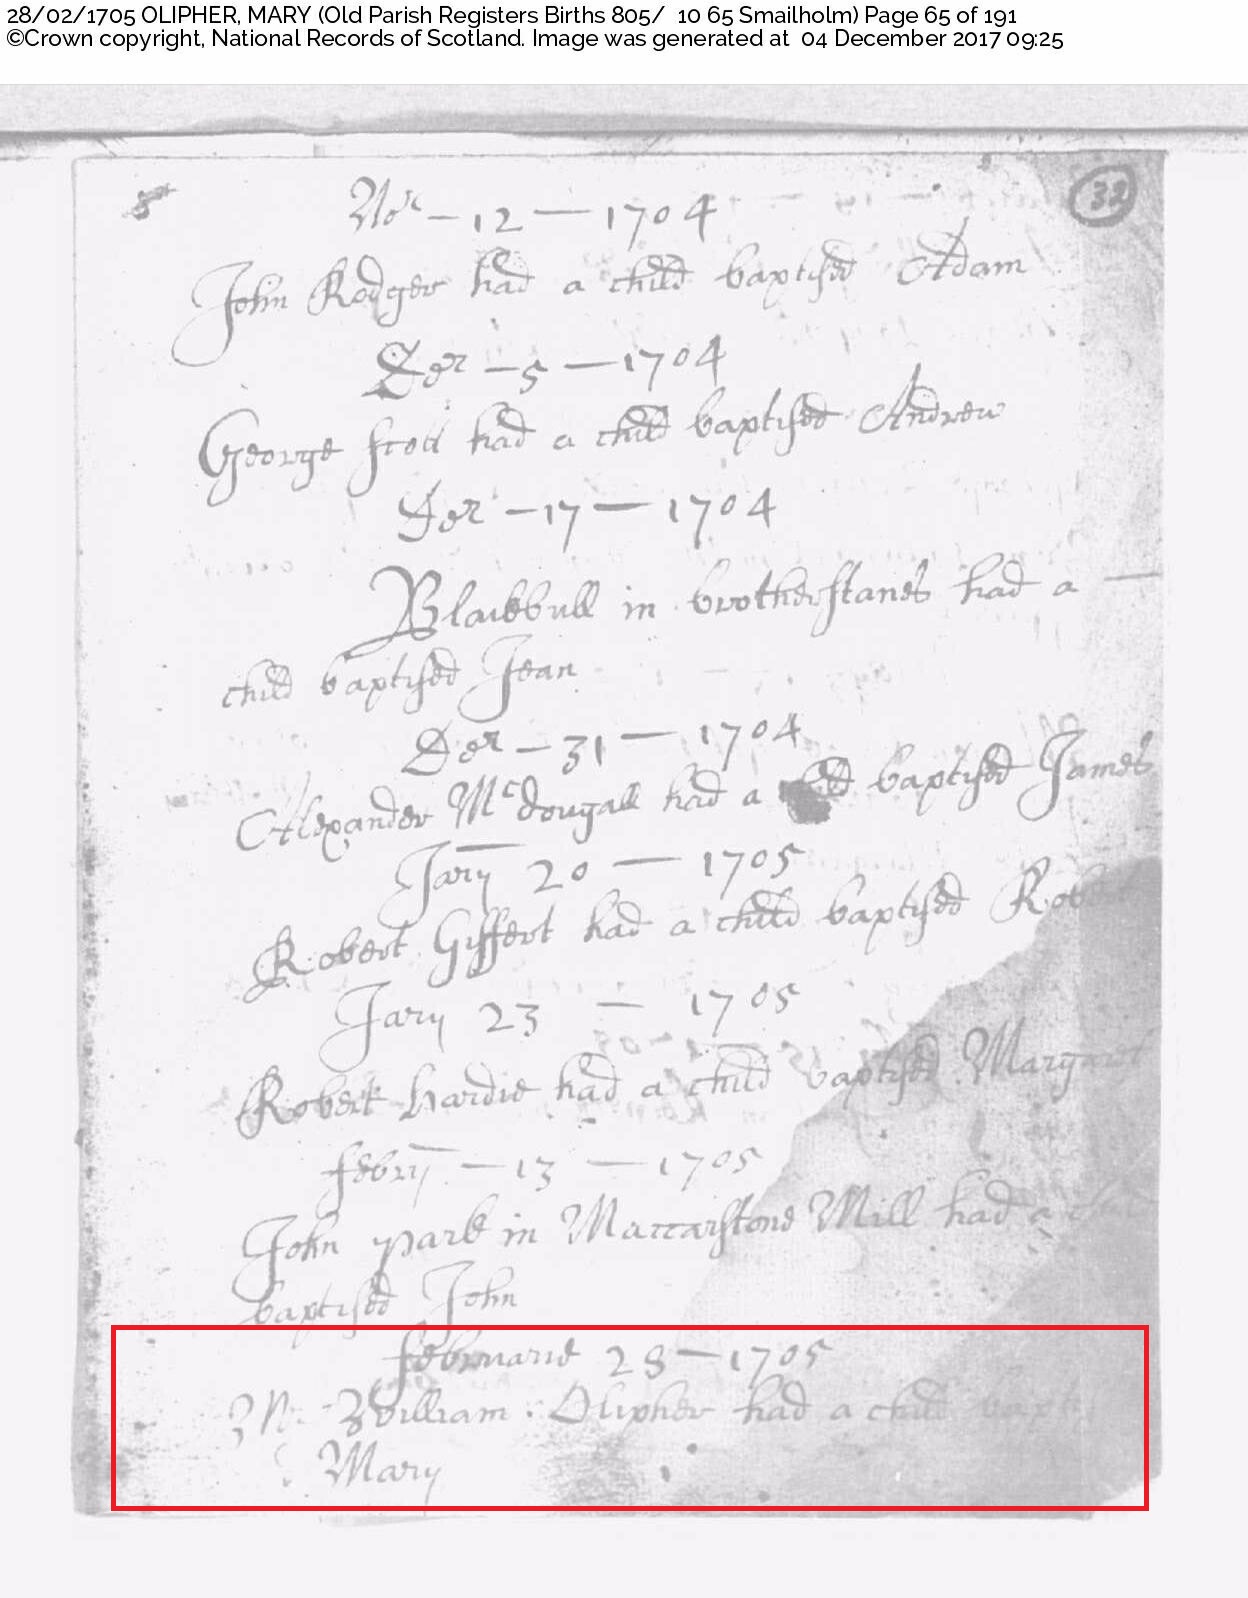 28/02/1705 OLIPHER, MARY (Old Parish Registers Births 805/ 10 65 Smailholm) Page 65 of 191
©Crown copyright, National Records of Scotland. Image was generated at 04 December 2017 09:25
32
Nor - 12 - 1704
John Rodger had a child baptised Adam
Der - 5 - 1704
George Scott had a child baptised Andrew
Der - 17 - 1704
Blackbull in brotherstanes had a
child baptised Jean
Der - 31 - 1704
Alexander Mcdougall had a baptised James
Jary 20 - 1705
Robert Giffert had a child baptised Robert
Jary 23 - 1705
Robert Hardie had a child baptised Margaret
febry - 13 - 1705
John park in Maccarstone Mill had a
baptised John
februarie 28 - 1705
Mr William Olipher had a child
Mary